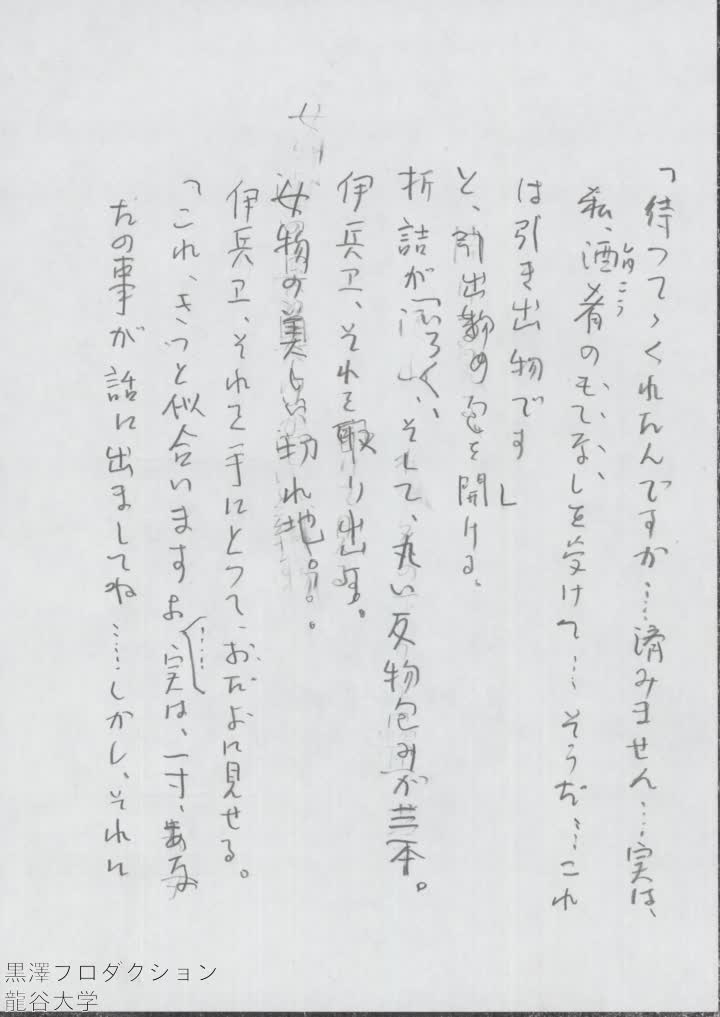 「待つてゝくれたんですか……済みません……実は、
私、酒肴のもてなしを受けて……そうだ……これ
しゅこう
は引き出物です」
と、引出物の包を開ける。
折詰が、そして、丸い反物包みが三本。
伊兵卫、それを取り出す。
女物の美しい切れ地。
伊兵卫、それを手にとつて、おたよに見せる。
「これ、きつと似合いますよ……実は、一寸、あな
たの事が話に出ましてね……しかし、それに
女
黒澤プロダクション
龍谷大学